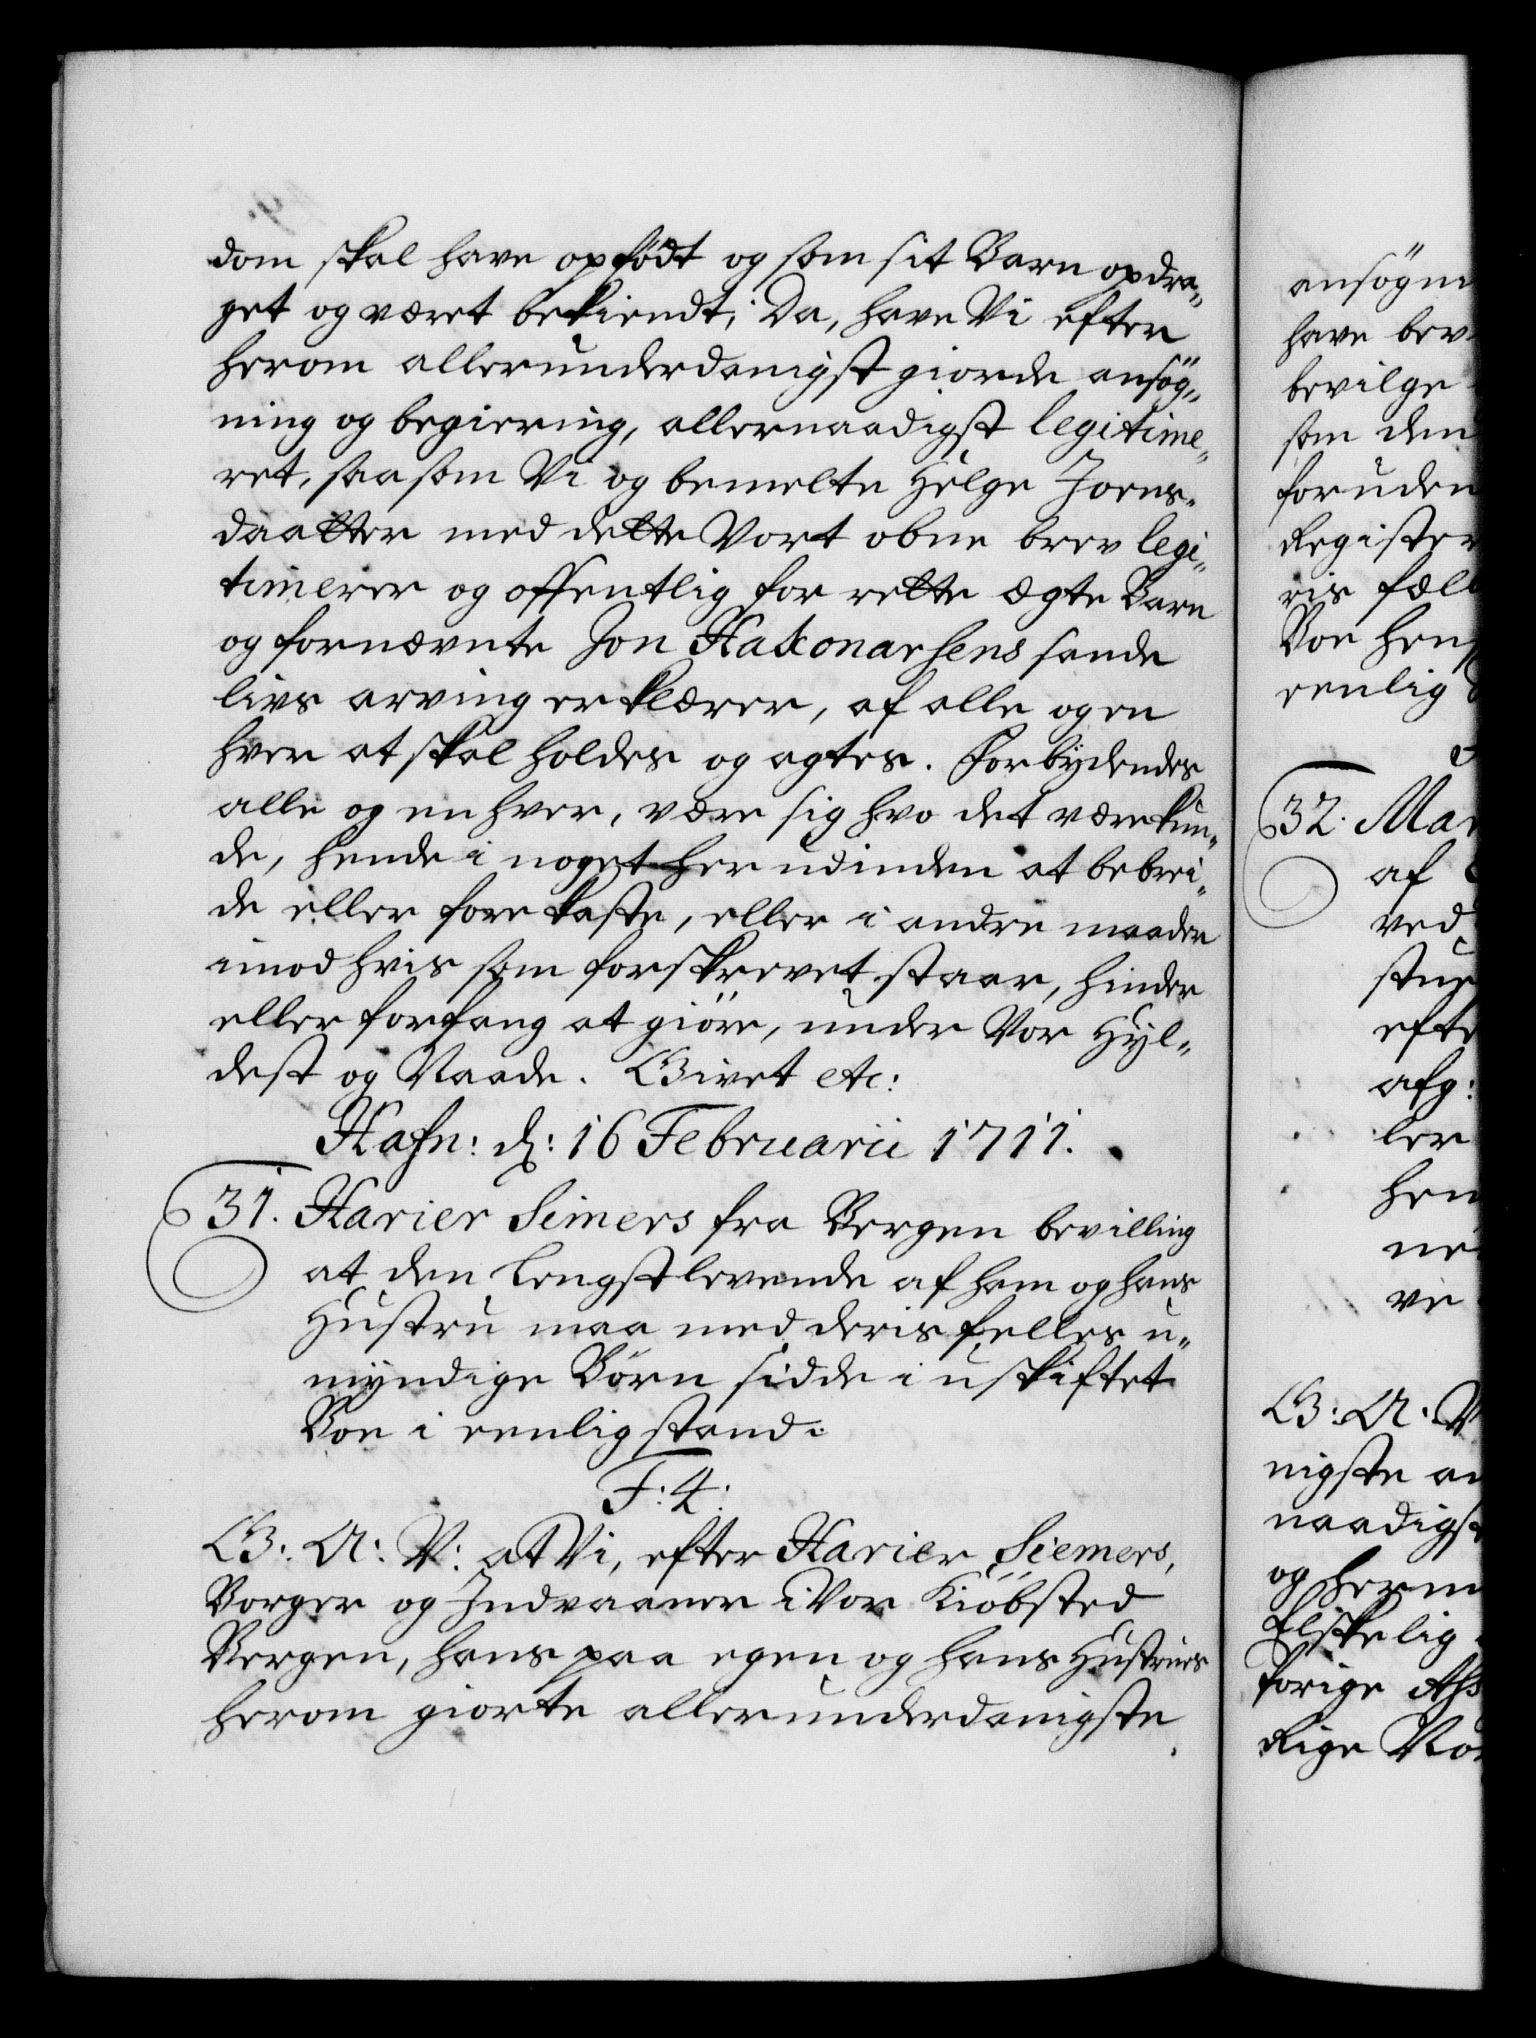 dom skal have opfödt og som sit Barn opdra„
get og været bekiendt; Da, have Vi efter
herom allerunderdanigst giorde ansög„
ning og begiering, allernaadigst legitime„
ret, saasom Vi og bemelte Helge Joens„
daatter med dette Vort obne brev legi„
timerer og offentlig for rette ægte Barn
og fornævnte Jon Hakonarsens sande
livs arving erklærer, af alle og en
hver at skal holdes og agtes. Forbÿdendes
alle og en hver, være sig hvo det være kun„
de, hende i noget her udinden at bebrei„
de eller forekaste, eller i andre maader
imod hvis som forskrevet staar, hinder
eller forfang at giöre, under Vor Hyl„
dest og Naade. Givet etc:
Hafn: d: 16 Februarii 1711.
31. Harier Simers fra Bergen bevilling
at den Lengstlevende af ham og hans
Hustru maa med deris felles u„
myndige Börn sidde i uskiftet
Boe i eenlig stand.
F: 4:
G: A: V: at Vi, efter Harier Siemers,
Borger og Indvaaner i Vor Kiöbsted
Bergen, hans paa egen og hans Hustrues
herom giorte allerunderdanigste
ansögni
have bev
bevilge
som den
foruden
Register
ris fæll
Boe hen
eenlig
32. Mar
af
ved
stue
efte
afg:
ler
hen
ne
ve
G: A: V
nigste an
naadigst
og herm
Elskelig
forige Ass
Rige No